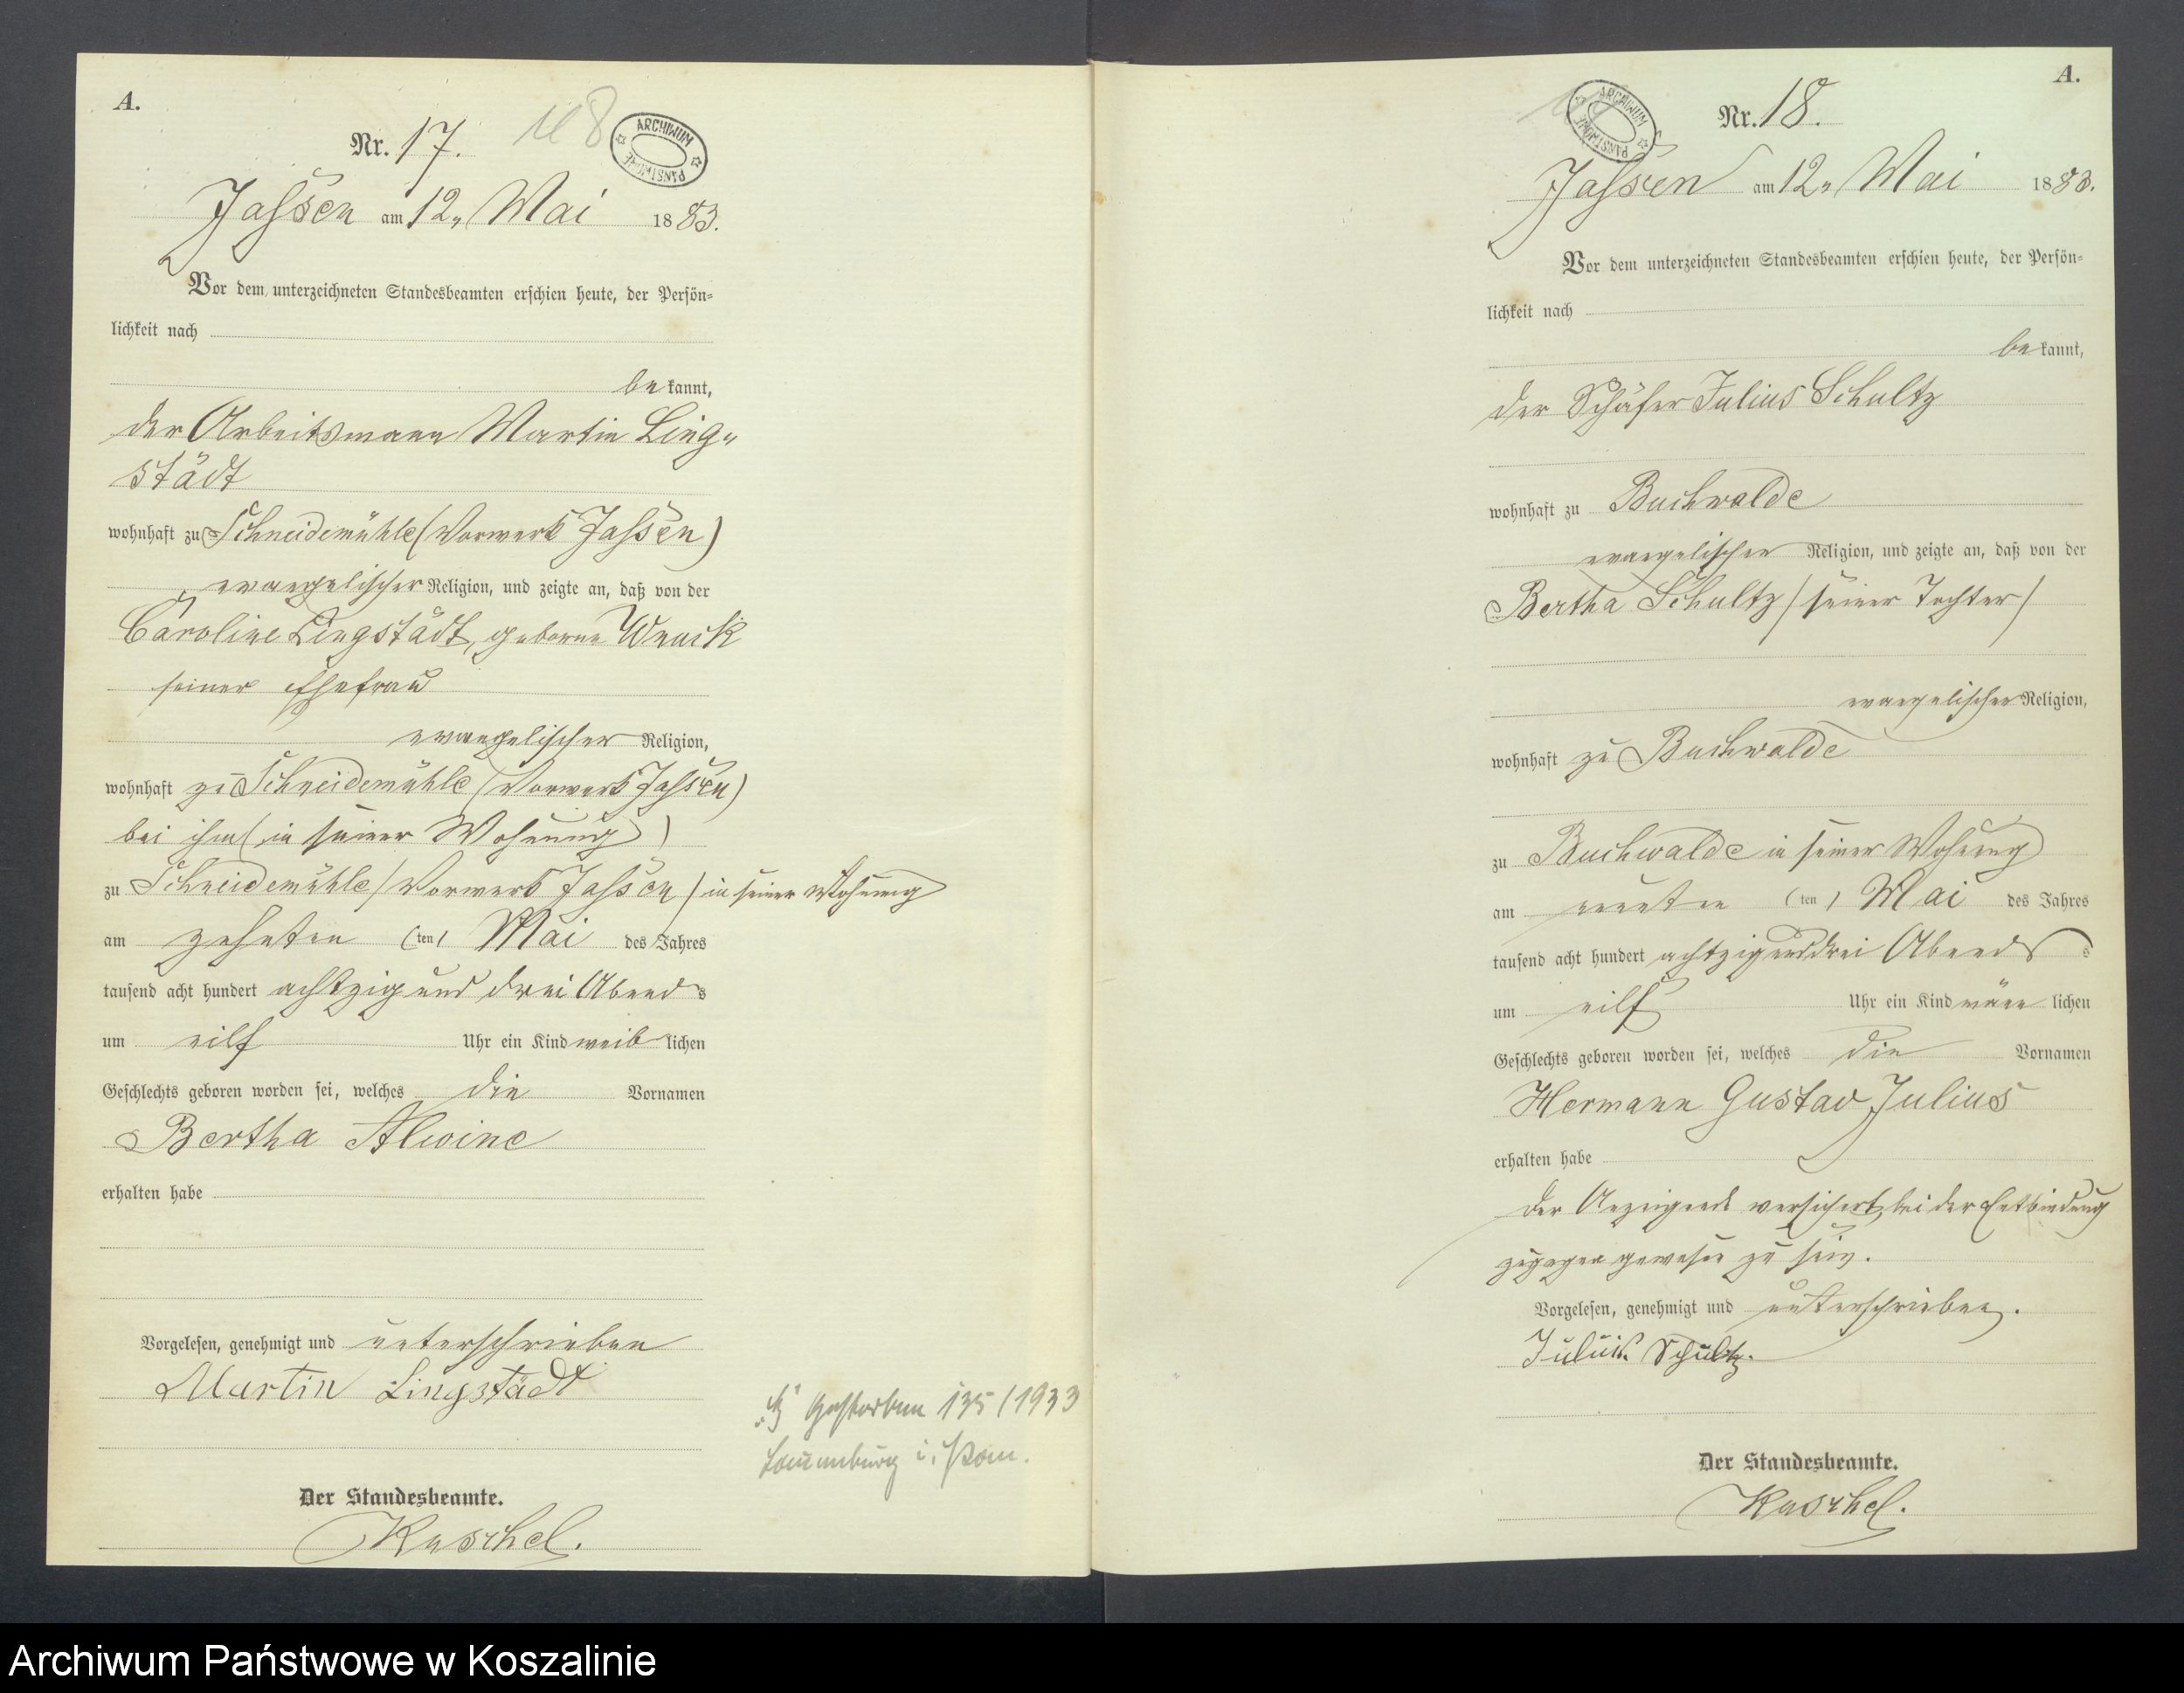 A.
Nr. 17.
118
ARCHIWUM PAŃSTWOWE
Jassen am 12. Mai 1883.
Vor dem unterzeichneten Standesbeamten erschien heute, der Persön-
lichkeit nach
bekannt,
der Arbeitsmann Martin Ling-
städt
wohnhaft zu Schneidemühle (Vorwerk Jassen)
evangelischer Religion, und zeigte an, daß von der
Caroline Lingstädt, geborne Wruck
seiner Ehefrau
evangelischer Religion,
wohnhaft zu Schneidemühle (Vorwerk Jassen)
bei ihm (in seiner Wohnung)
zu Schneidemühle (Vorwerk Jassen) in seiner Wohnung
am zehnten (ten) Mai des Jahres
tausend acht hundert achtzig und drei Abends
um eilf Uhr ein Kind weiblichen
Geschlechts geboren worden sei, welches die Vornamen
Bertha Alwine
erhalten habe
Vorgelesen, genehmigt und unterschrieben
Martin Lingstädt
Gestorben 135/1933
Lauenburg i. Pom.
Der Standesbeamte.
Kuschel.
A.
Nr. 18.
ARCHIWUM PAŃSTWOWE
Jassen am 12. Mai 1883.
Vor dem unterzeichneten Standesbeamten erschien heute, der Persön-
lichkeit nach
bekannt,
der Schäfer Julius Schultz
wohnhaft zu Buchwalde
evangelischer Religion, und zeigte an, daß von der
Bertha Schultz (seiner Tochter)
evangelischer Religion,
wohnhaft zu Buchwalde
zu Buchwalde in seiner Wohnung
am neunten (ten) Mai des Jahres
tausend acht hundert achtzig und drei Abends
um eilf Uhr ein Kind männlichen
Geschlechts geboren worden sei, welches die Vornamen
Hermann Gustav Julius
erhalten habe
Der Anzeigende versichert, bei der Entbindung
zugegen gewesen zu sein.
Vorgelesen, genehmigt und unterschrieben.
Julius Schultz.
Der Standesbeamte.
Kuschel.
Archiwum Państwowe w Koszalinie